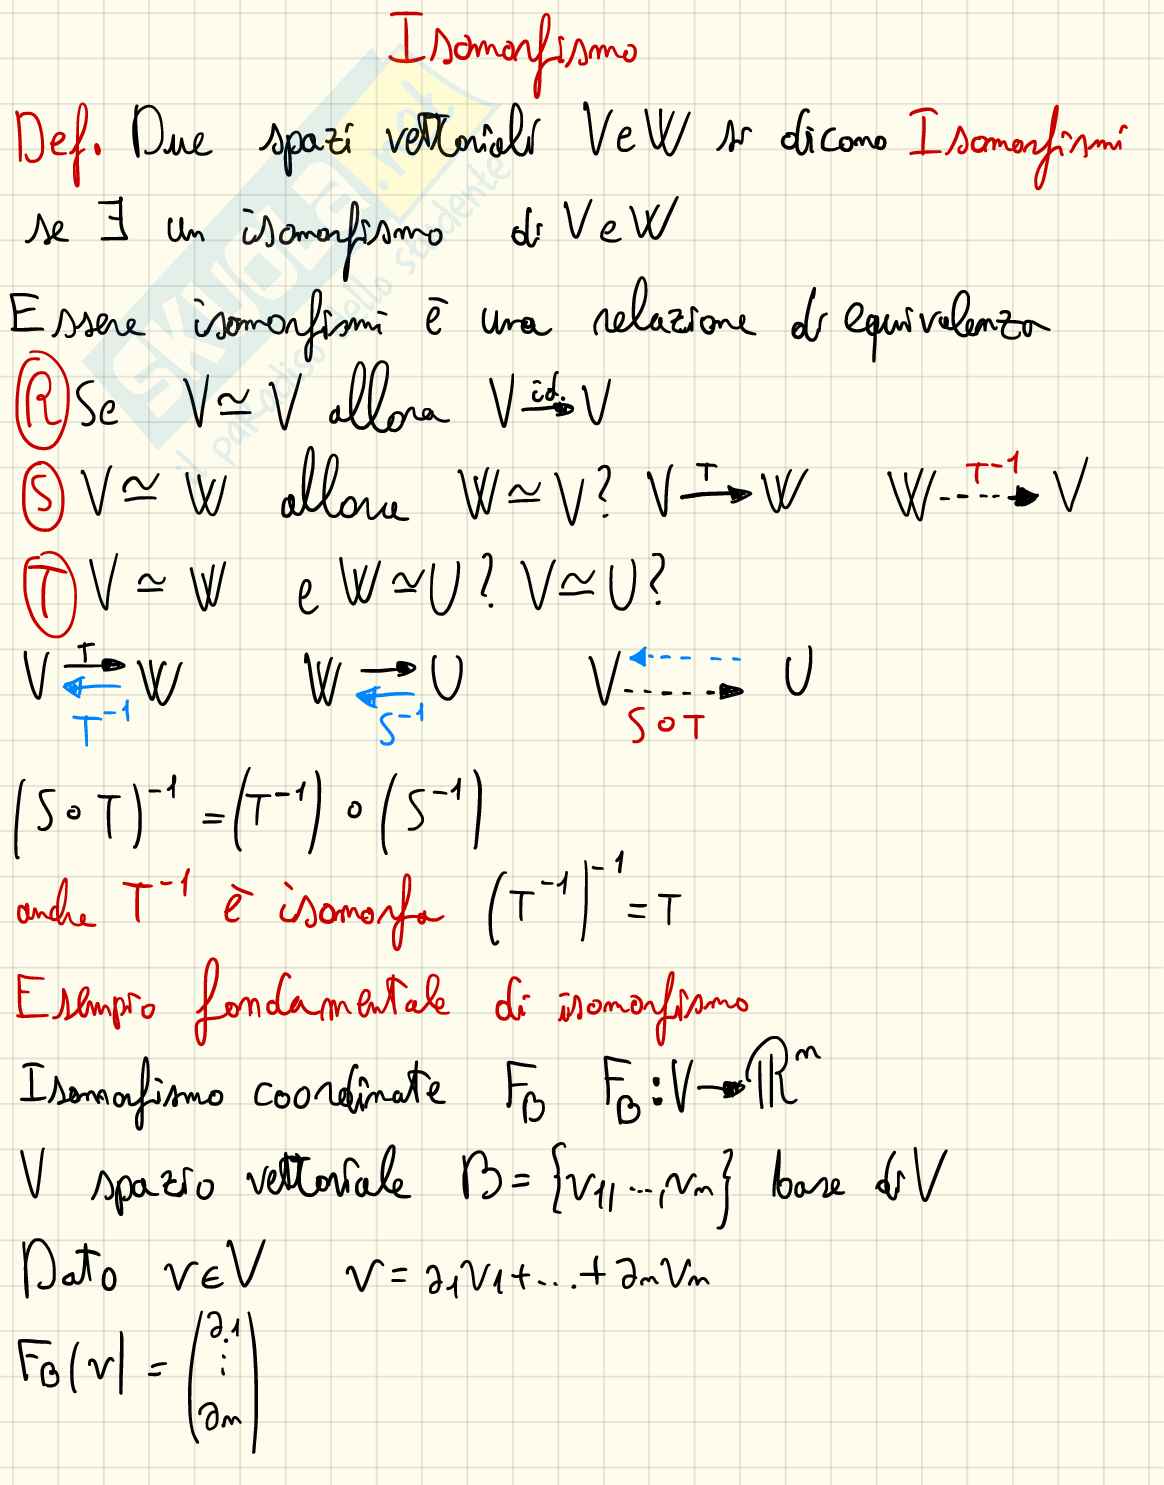 Isomorfismo
Def. Due spazi vettoriali V e W si dicono Isomorfismi
se ∃ un isomorfismo di V e W
Essere isomorfismi è una relazione di equivalenza
Ⓡ Se V ≃ V allora V →id. V
Ⓢ V ≃ W allora W ≃ V? V →T W W ⇢T⁻¹ V
Ⓣ V ≃ W e W ≃ U? V ≃ U?
V →T ←T⁻¹ W W → ←S⁻¹ U V ⇠ ⇢ S∘T U
(S∘T)⁻¹ = (T⁻¹) ∘ (S⁻¹)
anche T⁻¹ è isomorfa (T⁻¹)⁻¹ = T
Esempio fondamentale di isomorfismo
Isomorfismo coordinate F_B F_B : V → ℝⁿ
V spazio vettoriale B = {v₁, ..., vₙ} base di V
Dato v ∈ V v = a₁v₁ + ... + aₙvₙ
F_B(v) = (a₁ ⋮ aₙ)
SKUOLA.net
il paradiso dello studente